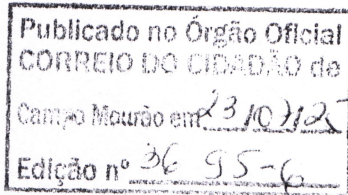 Publicado no Órgão Oficial
CORREIO DO CIDADÃO de
Campo Mourão em
Edição nº 36